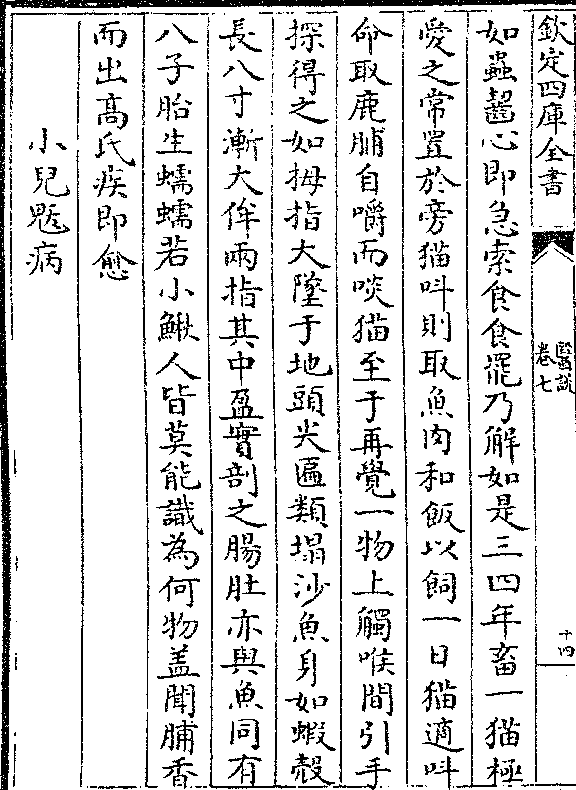 欽定四庫全書
醫說
卷七
十四
如蟲齧心即急索食食罷乃解如是三四年畜一猫極
愛之常置於旁猫呌則取魚肉和飯以飼一日猫適呌
命取鹿脯自嚼而啖猫至于再覺一物上觸喉間引手
探得之如拇指大墜于地頭尖匾類塌沙魚身如蝦殻
長八寸漸大侔兩指其中盈實剖之腸肚亦與魚同有
八子胎生蠕蠕若小鰍人皆莫能識為何物盖聞脯香
而出髙氏疾即愈
小兒鬾病